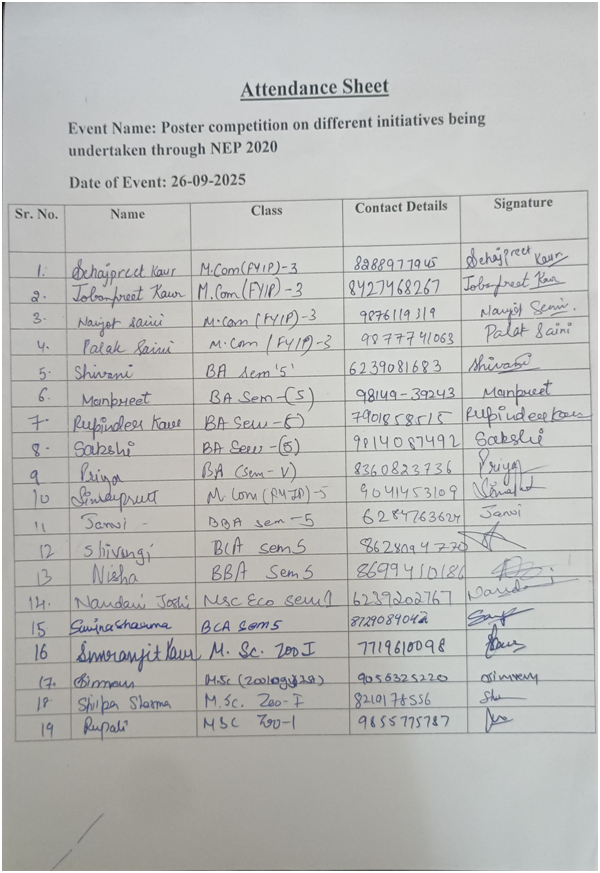 Attendance Sheet
Event Name: Poster competition on different initiatives being
undertaken through NEP 2020
Date of Event: 26-09-2025
Sr. No. Name Class Contact Details Signature
1. Sehajpreet Kaur M.Com(FYIP)-3 8288977945 Sehajpreet Kaur
2. Jobanpreet Kaur M.Com(FYIP)-3 8427468267 Jobanpreet Kaur
3. Navjot Saini M.Com (FYIP)-3 9876119319 Navjot Saini.
4. Palak Saini M.Com (FYIP)-3 9877741063 Palak Saini
5. Shivani BA sem'5' 6239081683 Shivani
6. Manpreet BA Sem-(5) 98149-39243 Manpreet
7. Rupinder Kaur BA Sem-5 7901858515 Rupinder Kaur
8. Sakshi BA Sem-(5) 9814087492 Sakshi
9 Priya BA (Sem-V) 8360823736 Priya
10 M.Com 9041453109
11 Janvi - BBA sem-5 6284763627 Janvi
12 Shivangi BCA sem5
13 Nisha BBA Sem5 8699410186
14. Nandani Joshi MSc Eco sem1 6239202767
15 Sharma BCA sem5
16 Simranjit Kaur M. Sc. Zoo I 7719610098 Kaur
17. M.Sc 9056325220
18 Shilpa Sharma M.Sc. Zoo-I 8219178556
19 Rupali MSC Zoo-1 9855775787